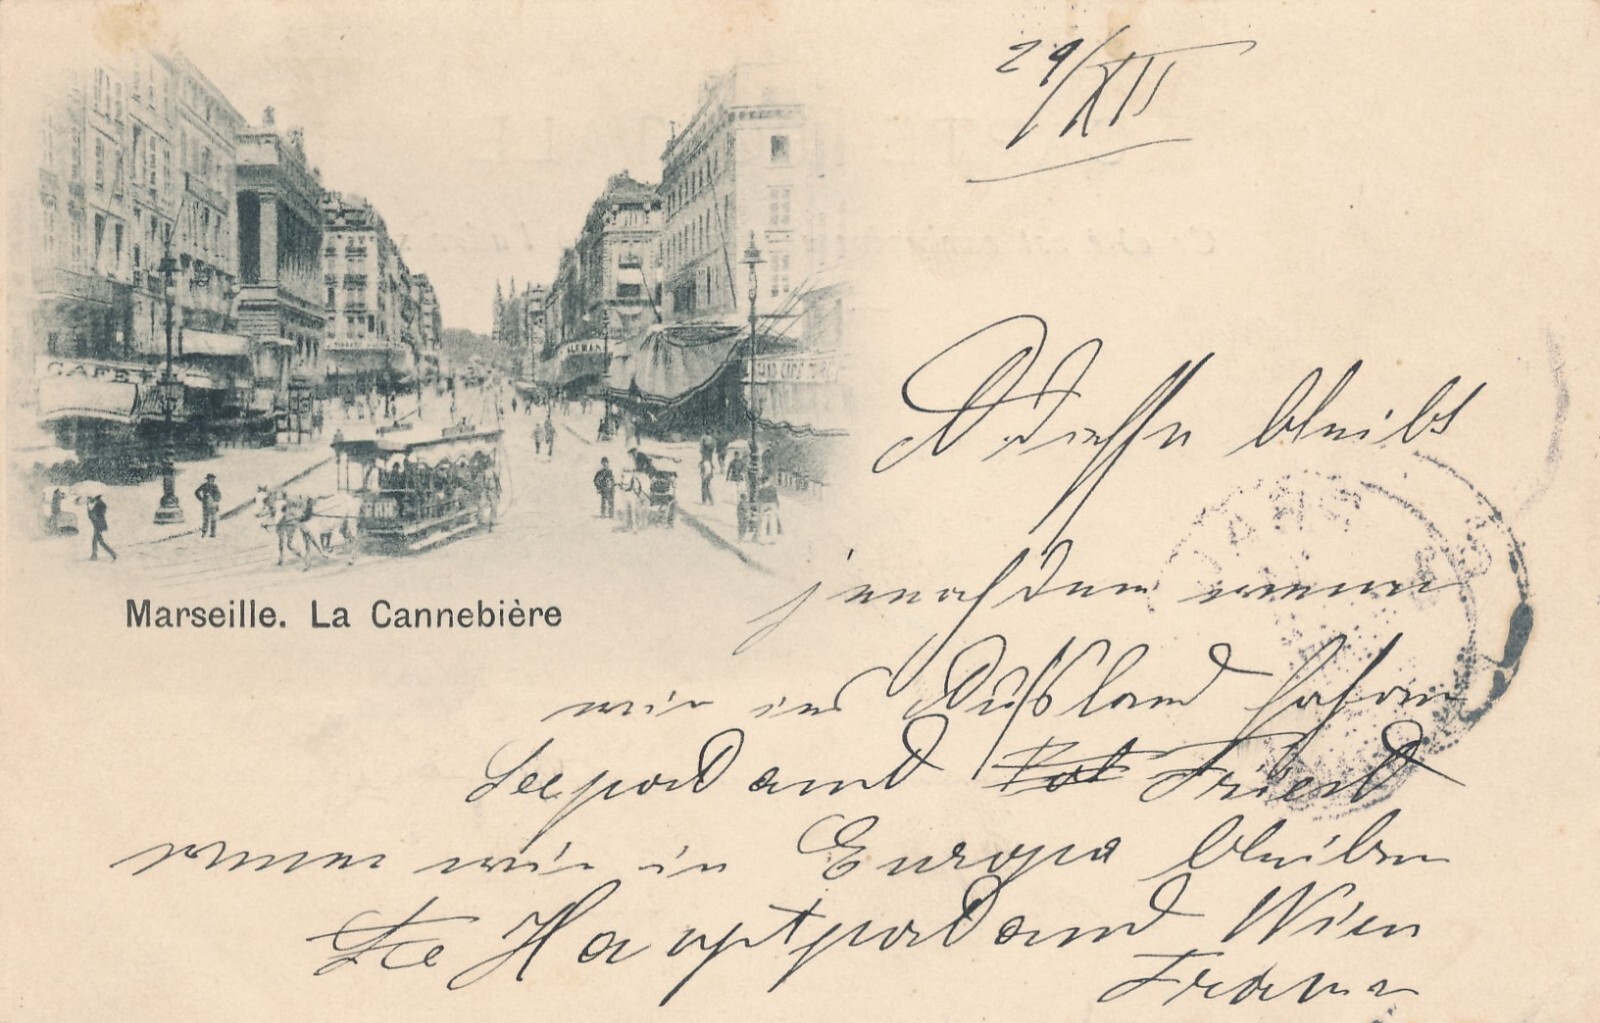 29/XII
CAFE
Marseille. La Cannebière
Adresse bleibt
jenachdem wenn
wir ins Ausland fahren
Seepostamt Triest
wenn wir in Europa bleiben
Hauptpostamt Wien
Franz